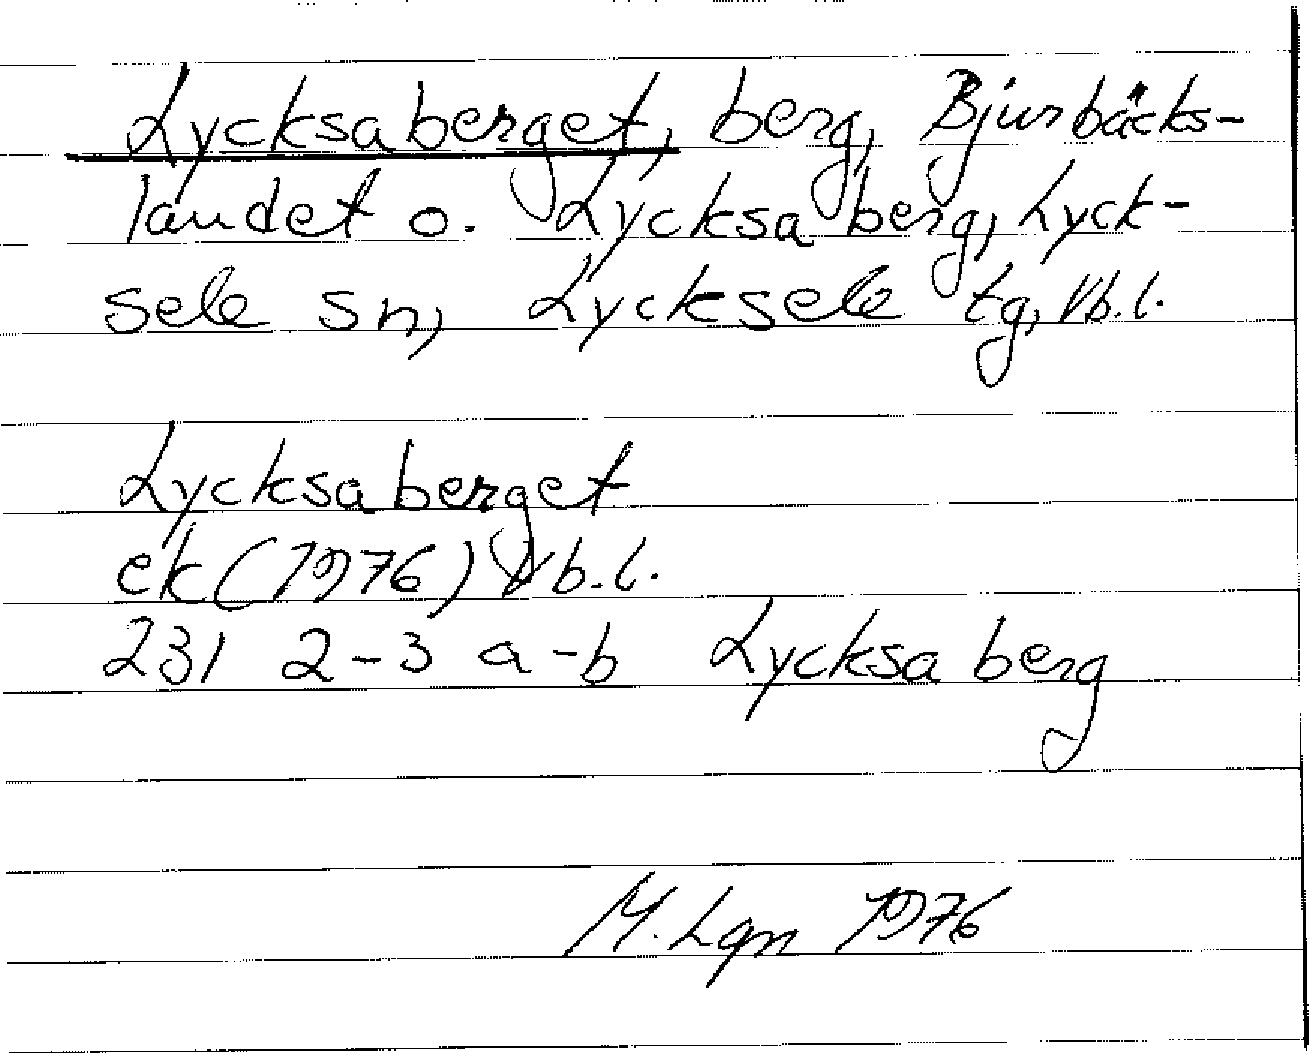 Lycksaberget, berg, Bjurbäcks-
landet o. Lycksaberg, Lyck-
sele sn, Lycksele tg, Vb.l.
Lycksaberget
ek (1976) Vb.l.
231 2-3 a-b Lycksaberg
M. Lgn 1976